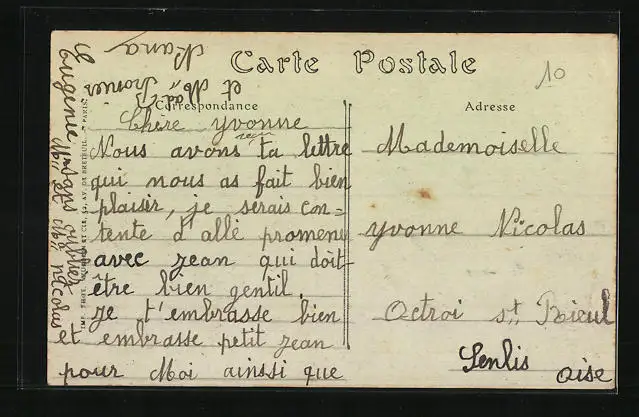 Carte Postale
10
Correspondance
Adresse
Chère yvonne
Nous avons reçu ta lettre
qui nous as fait bien
plaisir, je serais con=
tente d'allé promener
avec jean qui doit
être bien gentil.
je t'embrasse bien
et embrasse petit jean
pour Moi ainssi que
Eugénie
et
Mademoiselle
yvonne Nicolas
Octroi st Rieul
Senlis
oise